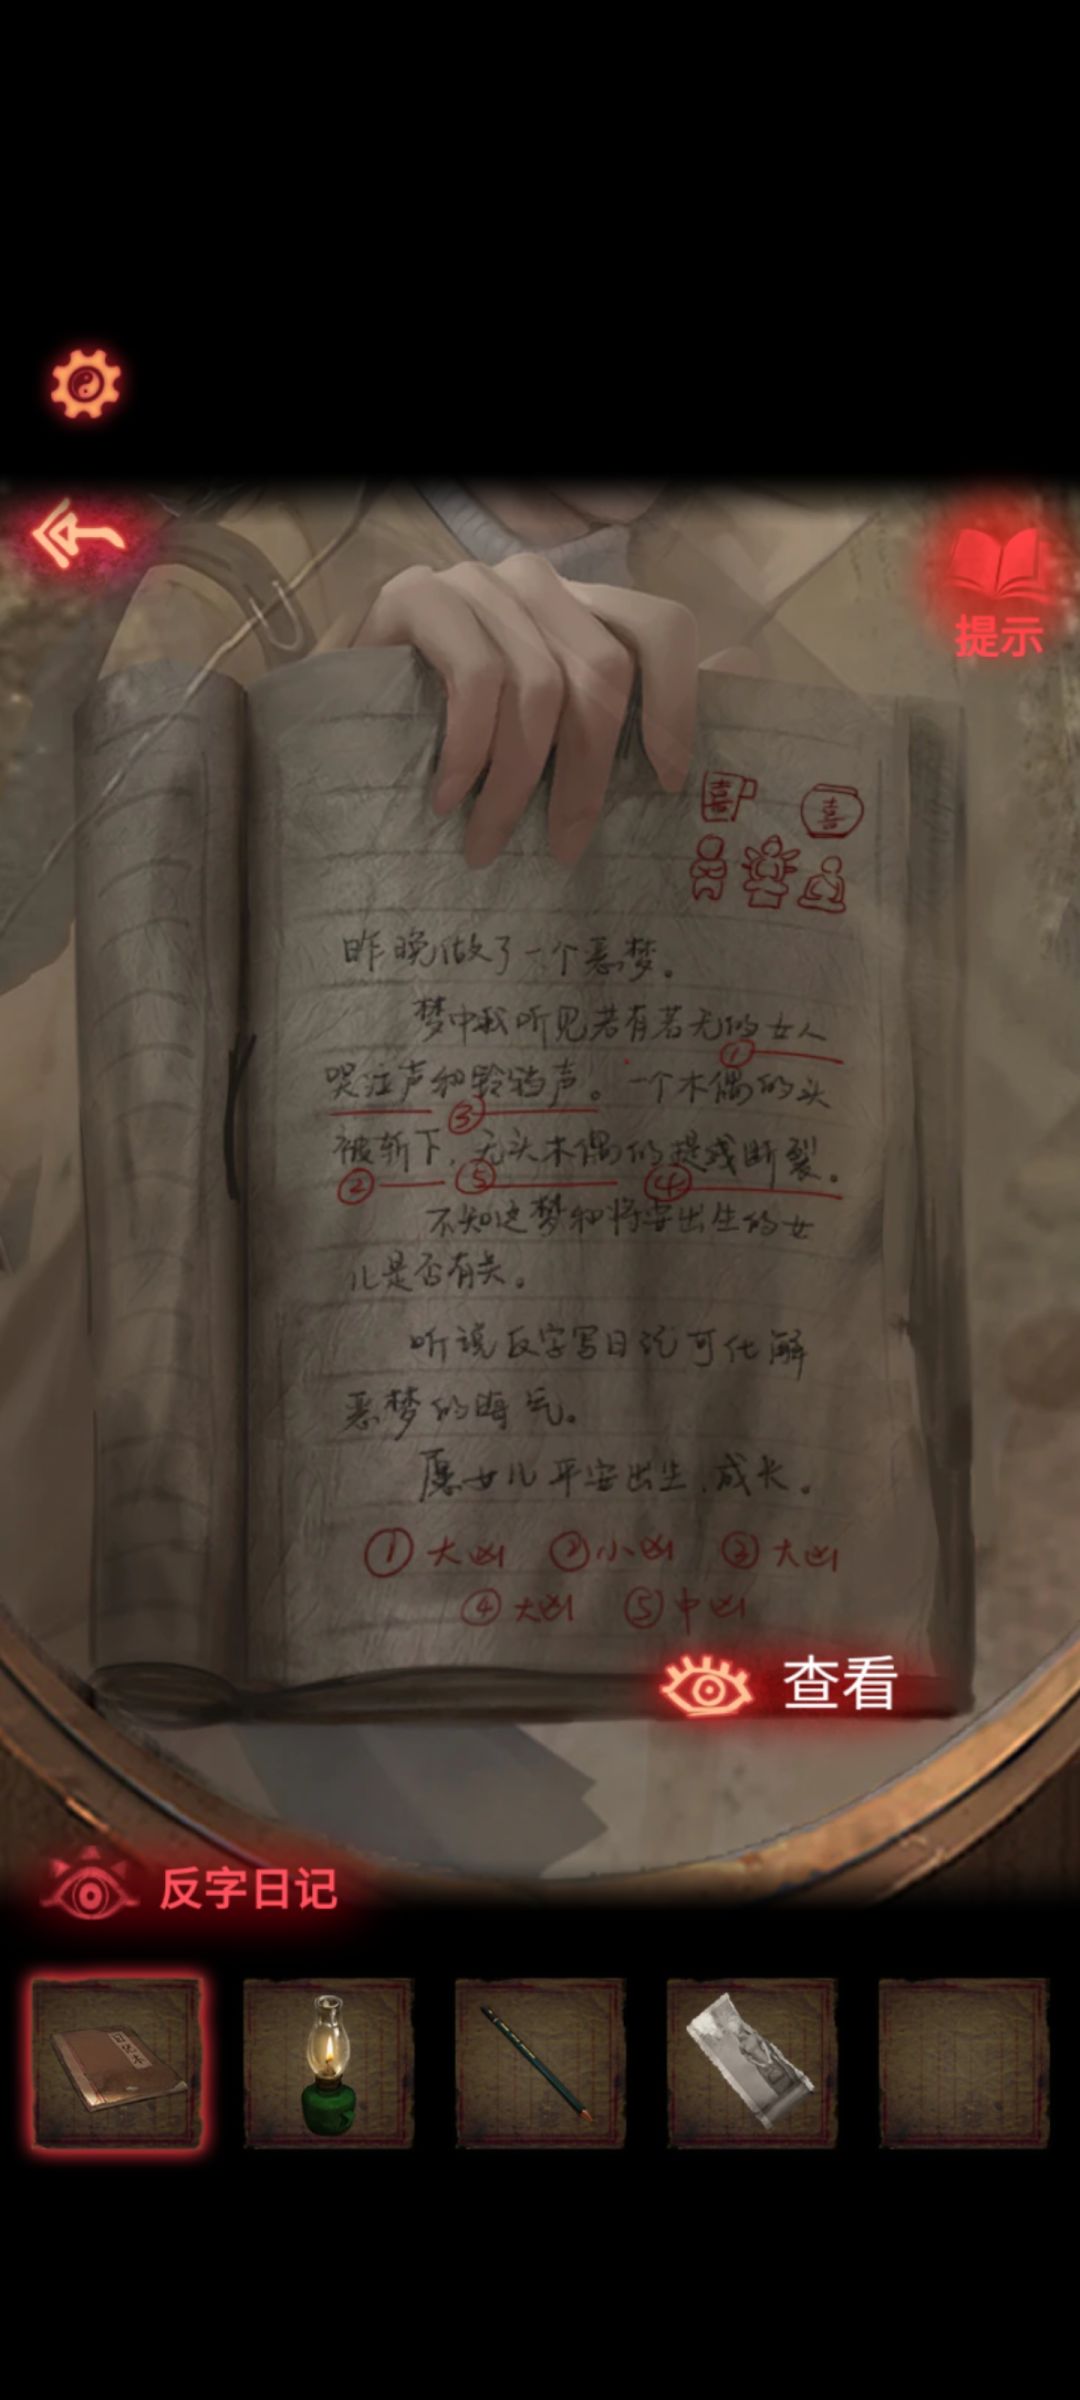 提示
喜 喜
昨晚做了一个恶梦。
梦中我听见若有若无的女人
①
哭泣声和铃铛声。一个木偶的头
③
被斩下,无头木偶的提线断裂。
② ⑤ ④
不知这梦和将要出生的女
儿是否有关。
听说反字写日记可化解
恶梦的晦气。
愿女儿平安出生,成长。
①大凶 ②小凶 ③大凶
④大凶 ⑤中凶
查看
反字日记
日记本